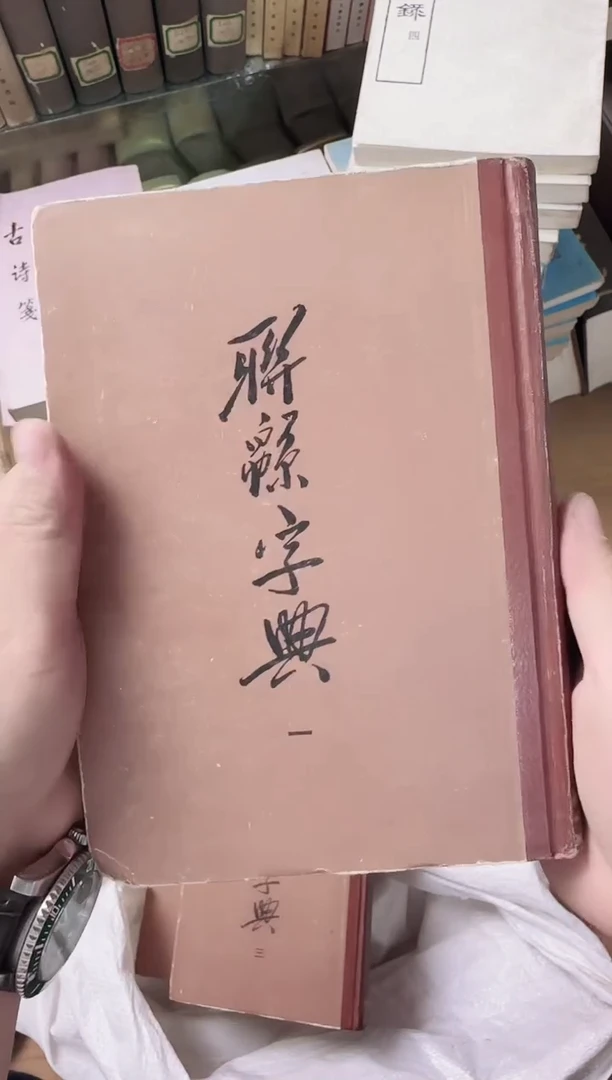 錄 四
古诗笺
聯緜字典
一
字典
三